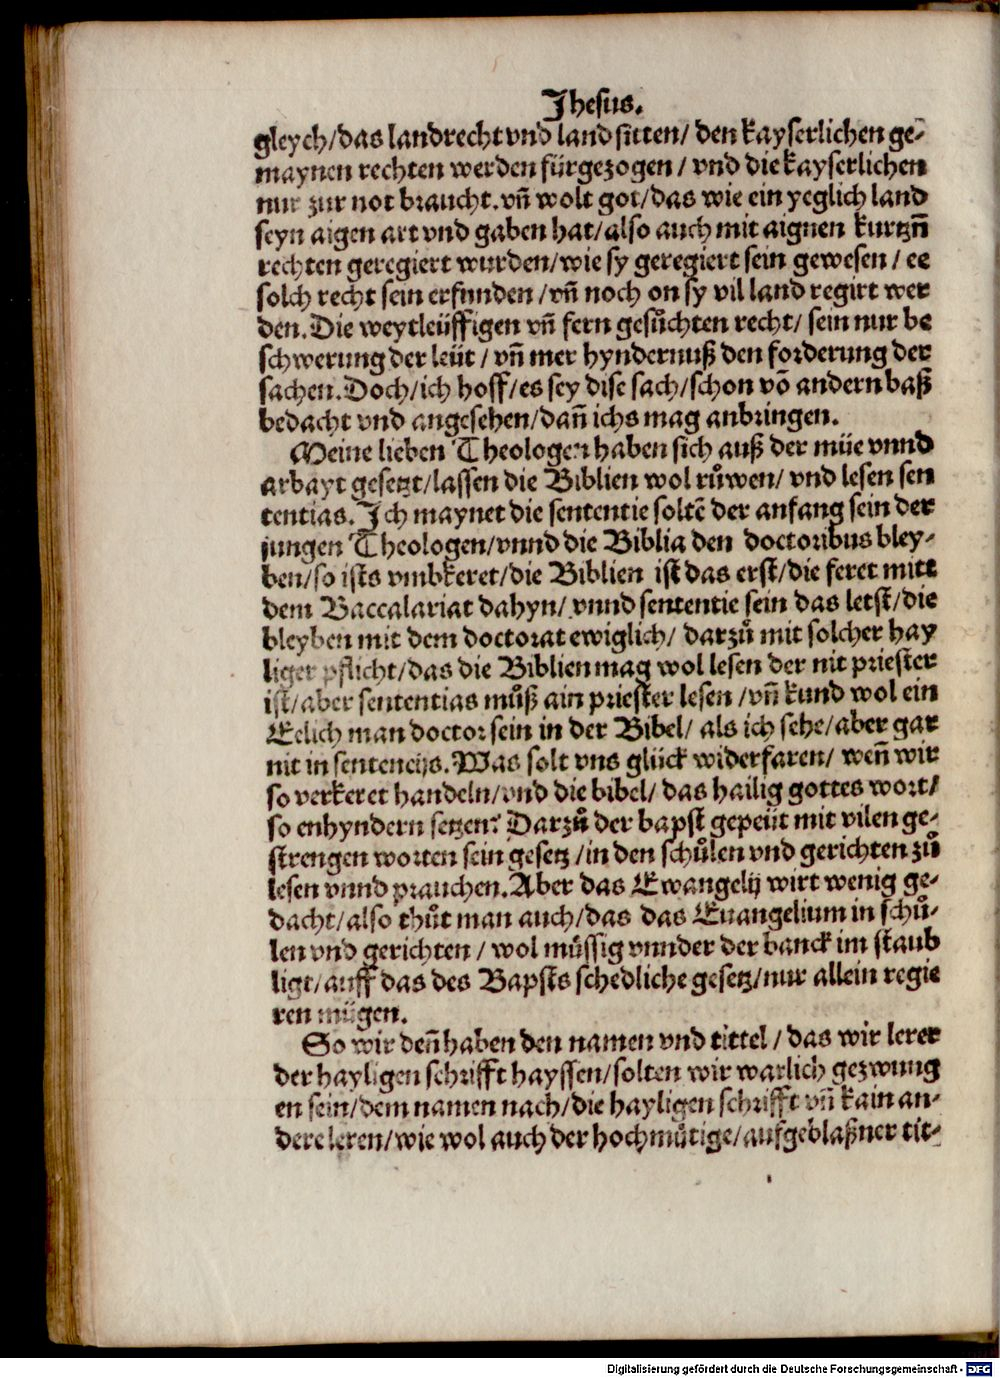 Jhesus.
gleych/das landrecht vnd land sitten/ den kayserlichen ge-
maynen rechten werden fürgezogen / vnd die kayserlichen
nur zur not braucht. vñ wolt got/das wie ein yeglich land
seyn aigen art vnd gaben hat/also auch mit aignen kurtzñ
rechten geregiert wurden/wie sy geregiert sein gewesen / ee
solch recht sein erfunden /vñ noch on sy vil land regirt wer
den. Die weytleüffigen vñ fern gesůchten recht/ sein nur be
schwerung der leüt / vñ mer hyndernuß den forderung der
sachen. Doch/ich hoff/es sey dise sach/schon võ andern baß
bedacht vnd angesehen/dañ ichs mag anbringen.
Meine lieben Theologen haben sich auß der müe vnnd
arbayt gesetzt/lassen die Biblien wol růwen/ vnd lesen sen
tentias. Ich maynet die sententie soltẽ der anfang sein der
jungen Theologen/vnnd die Biblia den doctoribus bley-
ben/so ists vmbkeret/die Biblien ist das erst/die feret mitt
dem Baccalariat dahyn/ vnnd sententie sein das letst/die
bleyben mit dem doctorat ewiglich/ darzů mit solcher hay
liger pflicht/das die Biblien mag wol lesen der nit priester
ist/aber sententias můß ain priester lesen /vñ kund wol ein
Eelich man doctor sein in der Bibel/ als ich sehe/aber gar
nit in sentencijs. Was solt vns glück widerfaren/ weñ wir
so verkeret handeln/vnd die bibel/ das hailig gottes wort/
so enhyndern setzen? Darzů der bapst gepeüt mit vilen ge-
strengen worten sein gesetz /in den schůlen vnd gerichten zů
lesen vnnd prauchen. Aber das Ewangelij wirt wenig ge-
dacht/also thůt man auch/das das Euangelium in schů-
len vnd gerichten / wol müssig vnnder der banck im staub
ligt/auff das des Bapsts schedliche gesetz/nur allein regie
ren mügen.
So wir deñ haben den namen vnd tittel / das wir lerer
der hayligen schrifft hayssen/solten wir warlich gezwung
en sein/dem namen nach/die hayligen schrifft vñ kain an-
dere leren/wie wol auch der hochmůtige/aufgeblaßner tit-
Digitalisierung gefördert durch die Deutsche Forschungsgemeinschaft - DFG